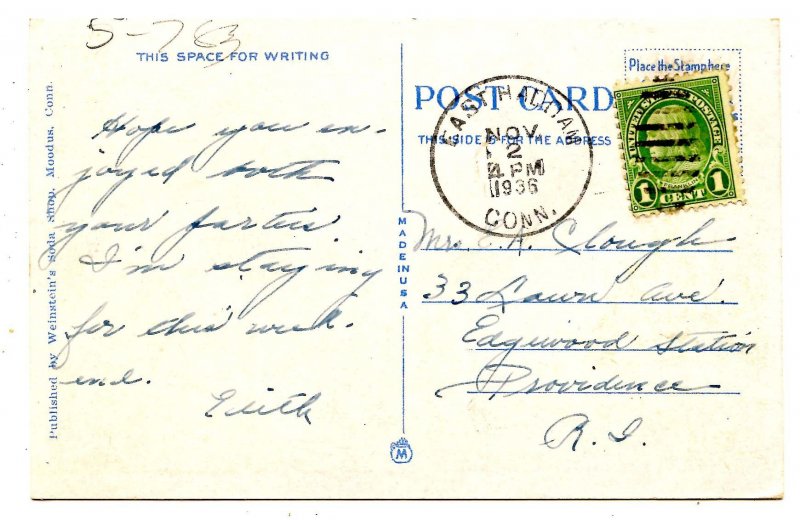 5-763
THIS SPACE FOR WRITING
Hope you en-
joyed both
your parties
I'm staying
for this week-
end.
Edith
Published by Weinstein's Soda Shop, Moodus, Conn.
MADE IN U S A
M
POST CARD
THIS SIDE IS FOR THE ADDRESS
Place the Stamp here
EAST HAMPTON
NOV
2
4 PM
1936
CONN.
UNITED STATES POSTAGE
FRANKLIN
1 CENT 1
Mrs. E. A. Clough
33 Lawn Ave.
Edgewood Station
Providence
R.I.